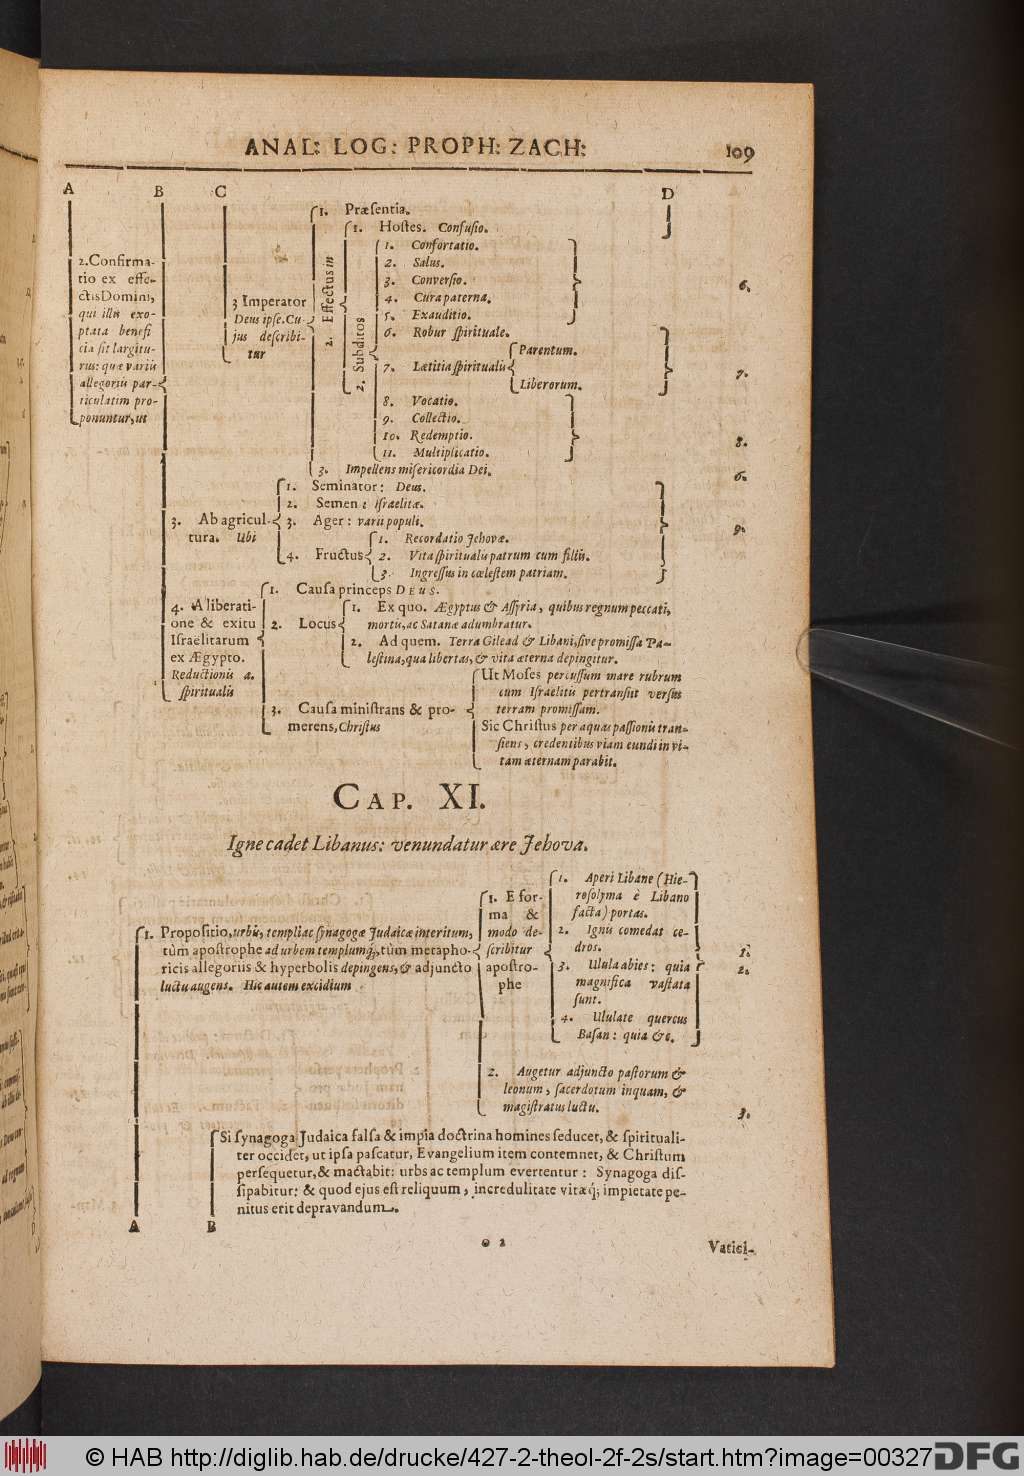 ANAL: LOG: PROPH: ZACH: 109
A B C D
2. Confirma-
tio ex effe-
ctis Domini,
qui illis exo-
ptata benefi
cia sit largitu-
rus: quæ variis
allegoriis par-
ticulatim pro-
ponuntur, ut
3 Imperator
Deus ipse. Cu-
jus describi-
tur
1. Præsentia.
2. Effectus in
1. Hostes. Confusio.
2. Subditos
1. Confortatio.
2. Salus.
3. Conversio.
4. Cura paterna.
5. Exauditio.
6.
6. Robur spirituale.
7. Lætitia spiritualis
Parentum.
Liberorum.
7.
8. Vocatio.
9. Collectio.
10. Redemptio.
11. Multiplicatio.
8.
3. Impellens misericordia Dei.
6.
3. Ab agricul-
tura. Ubi
1. Seminator: Deus.
2. Semen: Israelitæ.
3. Ager: varii populi.
4. Fructus
1. Recordatio Jehovæ.
2. Vita spiritualis patrum cum filiis.
3. Ingressus in cœlestem patriam.
9.
4. A liberati-
one & exitu
Israëlitarum
ex Ægypto.
Reductionis a.
spiritualis
1. Causa princeps DEUS.
2. Locus
1. Ex quo. Ægyptus & Assyria, quibus regnum peccati,
mortis, ac Satanæ adumbratur.
2. Ad quem. Terra Gilead & Libani, sive promissa Pa-
lestina, qua libertas, & vita æterna depingitur.
3. Causa ministrans & pro-
merens, Christus
Ut Moses percussum mare rubrum
cum Israelitis pertransiit versus
terram promissam.
Sic Christus per aquas passionis tran-
siens, credentibus viam eundi in vi-
tam æternam parabit.
CAP. XI.
Igne cadet Libanus: venundatur ære Jehova.
1. Propositio, urbis, templi ac synagogæ Judaicæ interitum,
tùm apostrophe ad urbem templumq́;, tùm metapho-
ricis allegoriis & hyperbolis depingens, & adjuncto
luctu augens. Hic autem excidium
1. E for-
ma &
modo de-
scribitur
apostro-
phe
1. Aperi Libane (Hie-
rosolyma è Libano
facta) portas.
2. Ignis comedat ce-
dros.
3. Ulula abies: quia
magnifica vastata
sunt.
4. Ululate quercus
Basan: quia &c.
1.
2.
2. Augetur adjuncto pastorum &
leonum, sacerdotum inquam, &
magistratus luctu.
3.
Si synagoga Judaica falsa & impia doctrina homines seducet, & spirituali-
ter occidet, ut ipsa pascatur, Evangelium item contemnet, & Christum
persequetur, & mactabit: urbs ac templum evertentur: Synagoga dis-
sipabitur: & quod ejus est reliquum, incredulitate vitæq́; impietate pe-
nitus erit depravandum.
A B
o 2
Vatici-
© HAB http://diglib.hab.de/drucke/427-2-theol-2f-2s/start.htm?image=00327
DFG